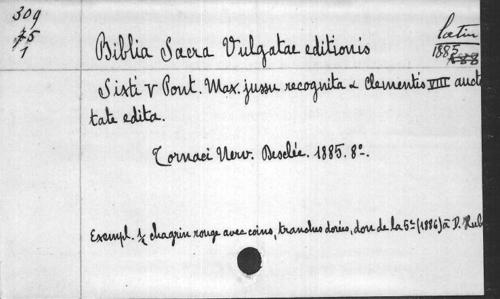 309
75
1
latin
1885
Biblia Sacra Vulgatae editionis
Sixti V Pont. Max. jussu recognita & Clementis VIII auct
tate edita.
Tornaci Nerv. Desclée. 1885. 8º.
Exempl. ½ chagrin rouge avec coins, tranches dorées, don de la 5e (1886) à D.